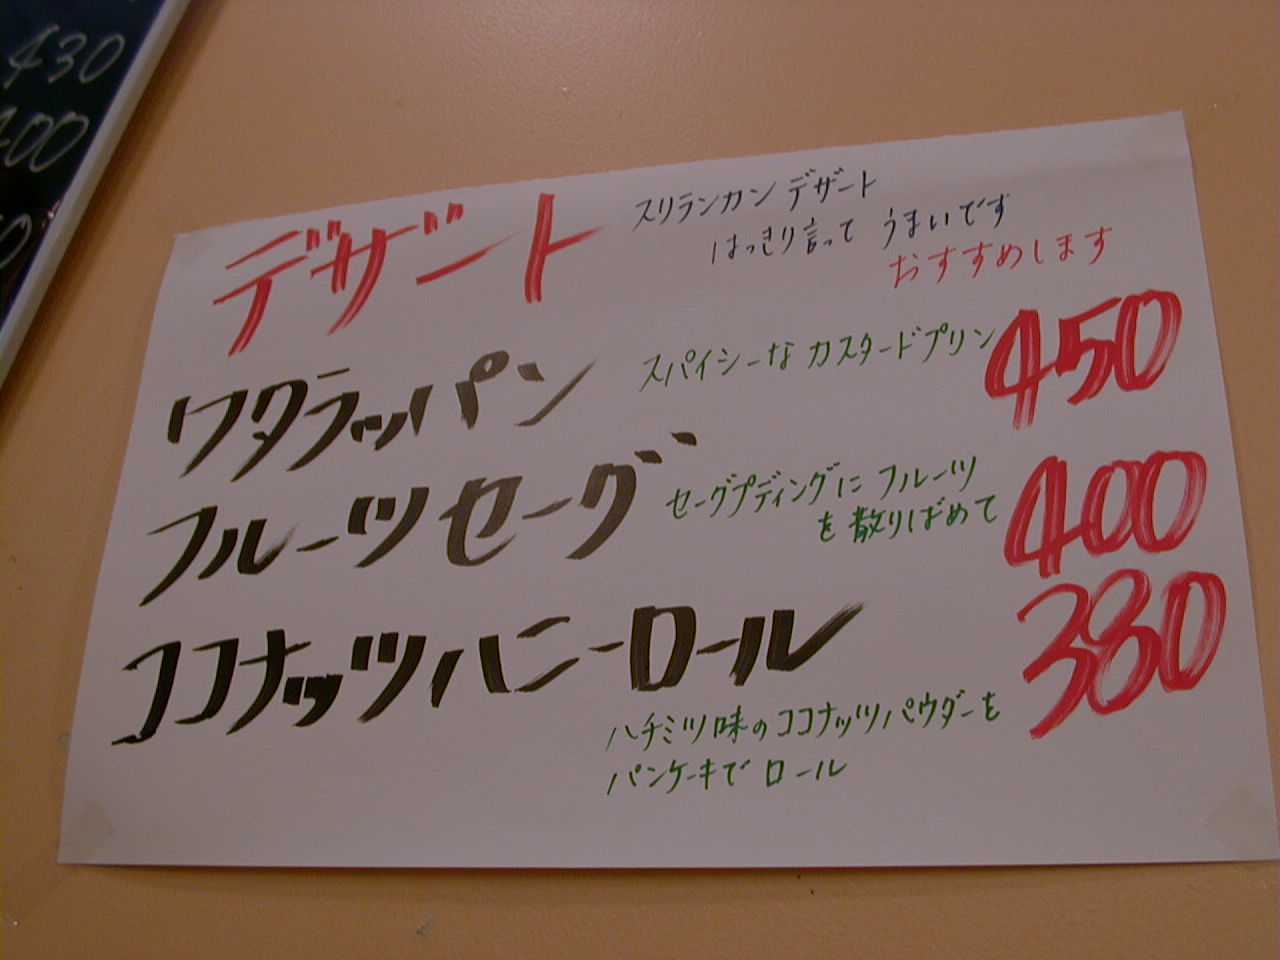 430
400
デザート
スリランカン デザート
はっきり言って うまいです
おすすめします
ワタラッパン
スパイシーな カスタードプリン
450
フルーツセーグ
セーグプディングに フルーツ
を散りばめて
400
ココナッツハニーロール
380
ハチミツ味のココナッツパウダーを
パンケーキで ロール